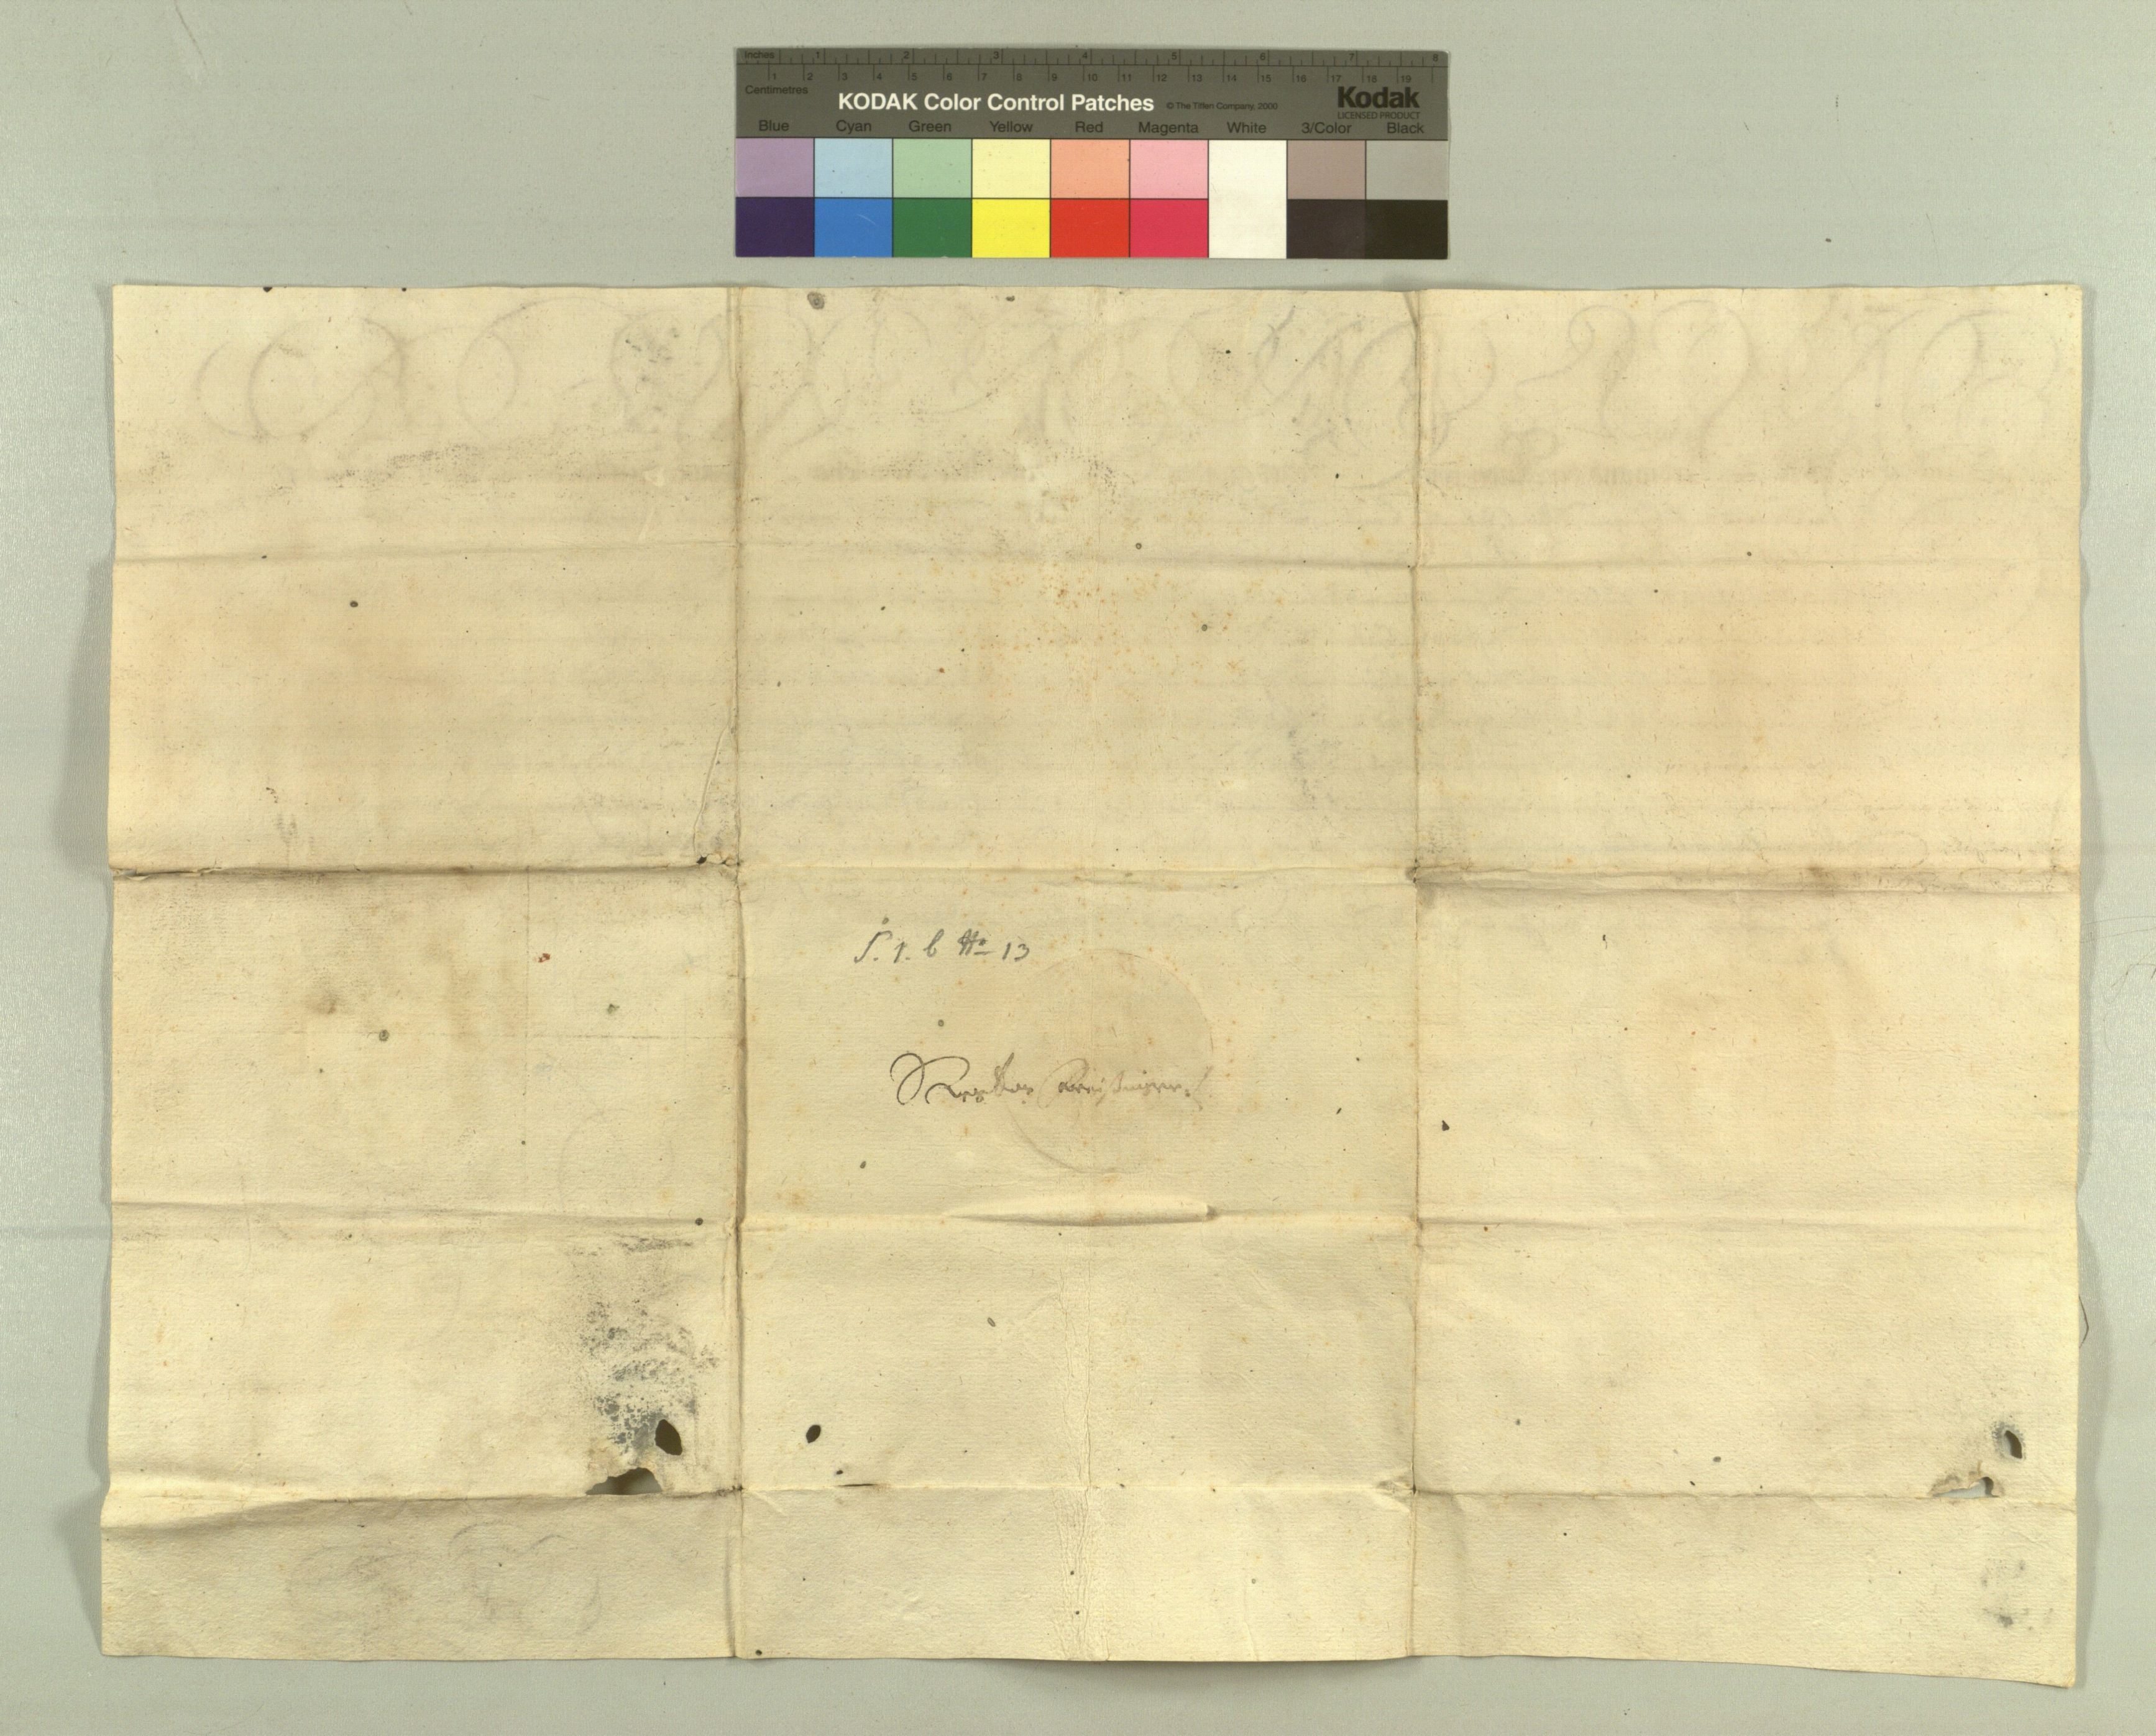 Inches 1 2 3 4 5 6 7 8
1 2 3 4 5 6 7 8 9 10 11 12 13 14 15 16 17 18 19
Centimetres
KODAK Color Control Patches © The Tiffen Company, 2000 Kodak
LICENSED PRODUCT
Blue Cyan Green Yellow Red Magenta White 3/Color Black
S. 1. b No 13